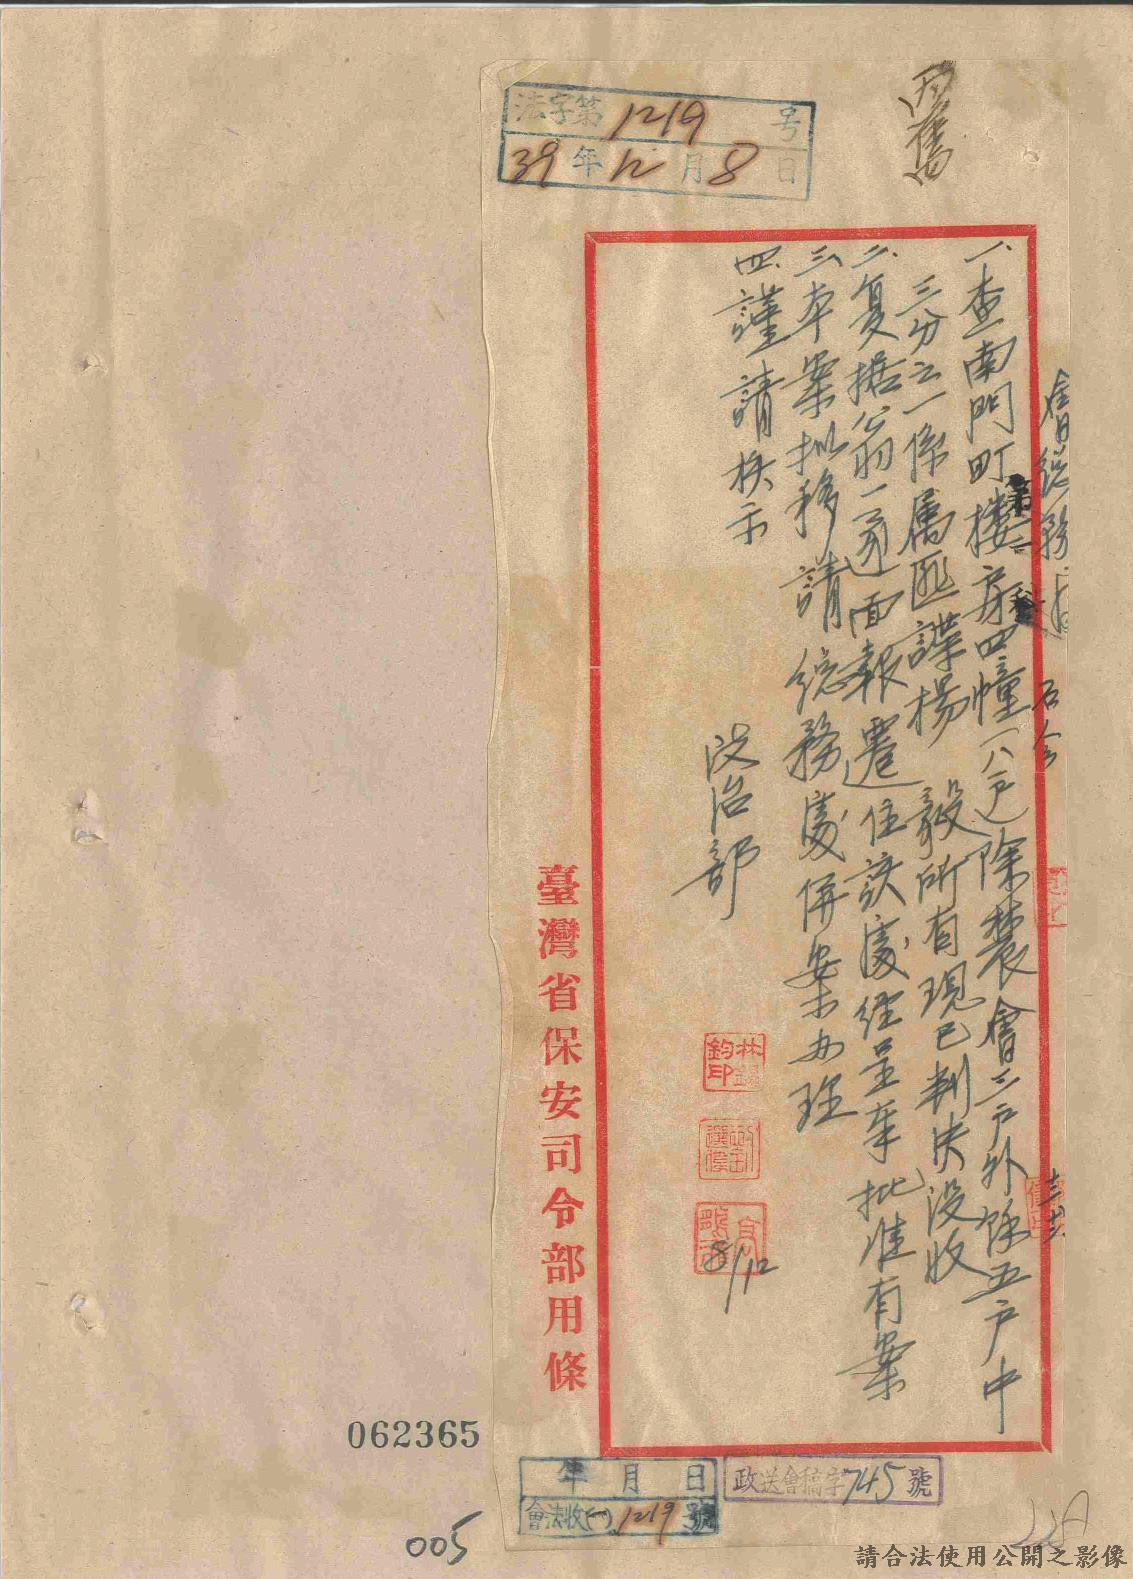 法字第1219号
39年12月8日
會總務處
一、查南門町樓房四幢(八戶)除農會三戶外餘五戶中
三分之一係屬匪諜楊 毅所有現已判決沒收
二、复据翁一逈面報遷住該處經呈奉批准有案
三、本案拟移請總務處併案办理
四、謹請核示
政治部
8/12
臺灣省保安司令部用條
062365
年 月 日
會法收(一)1219號
政送會稿字745號
005
請合法使用公開之影像